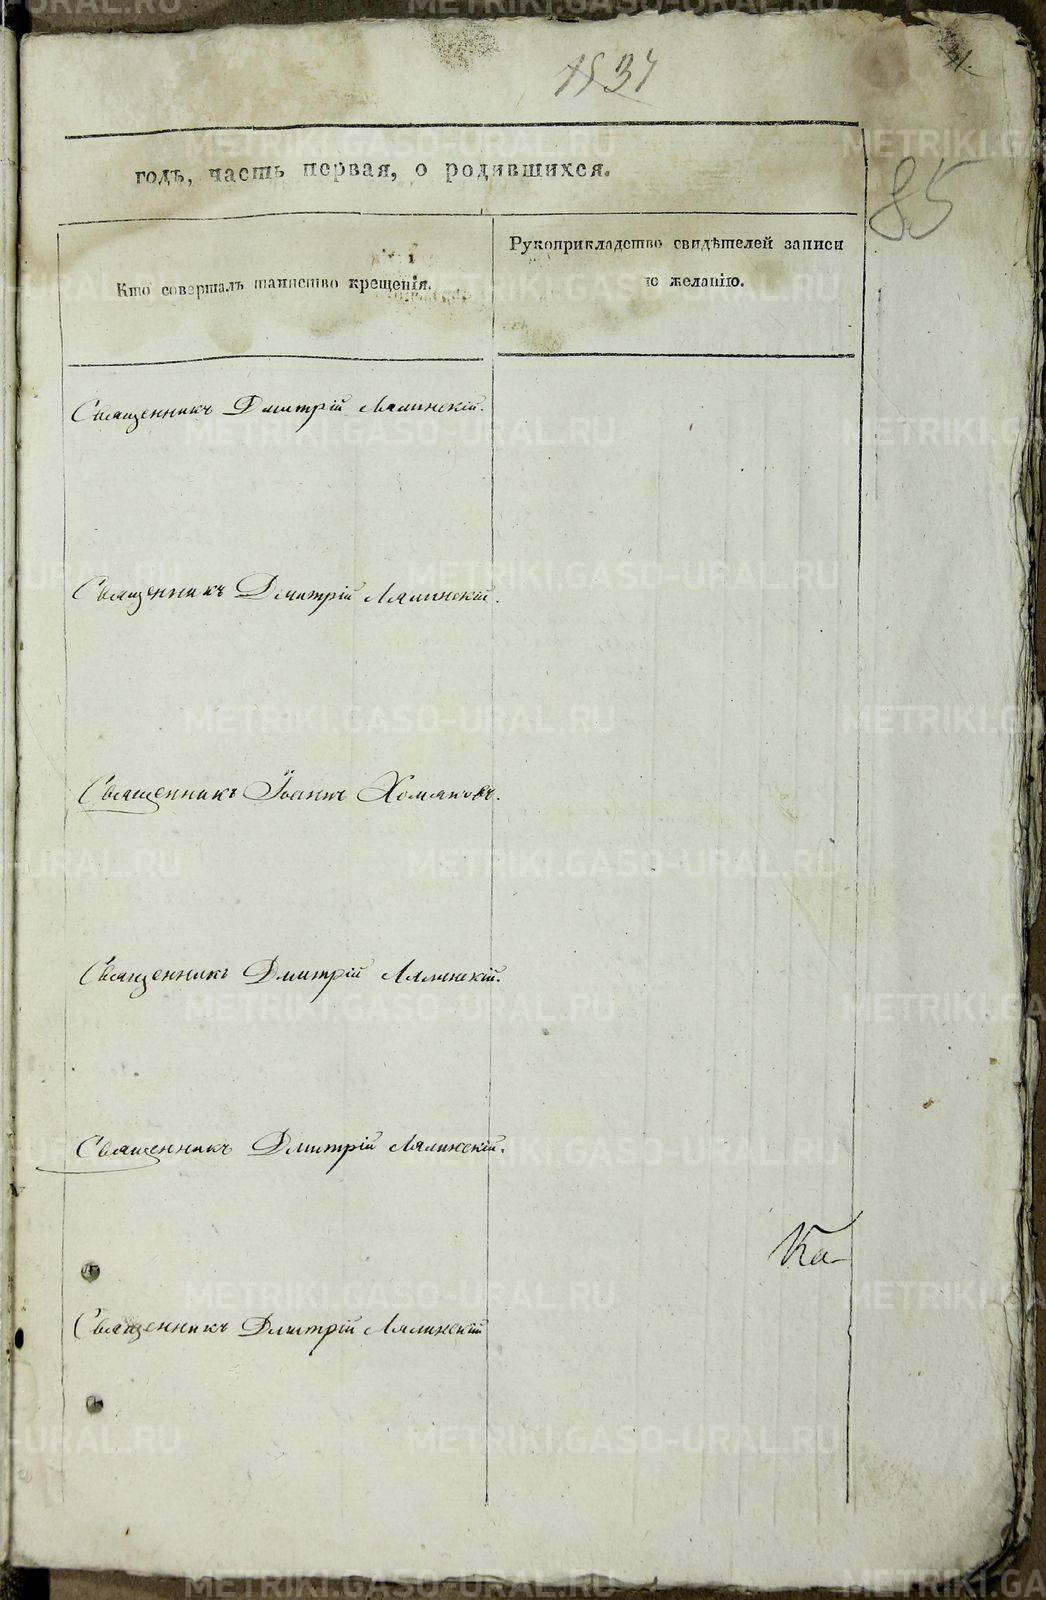 1837
годъ, часть первая, о родившихся.
85
Кто совершалъ таинство крещенія.
Рукоприкладство свидѣтелей записи
по желанію.
Священникъ Дмитрій Лялинскій.
Священникъ Дмитрій Лялинскій.
Священникъ Іоаннъ Хомяковъ.
Священникъ Дмитрій Лялинскій.
Священникъ Дмитрій Лялинскій.
Ка
Священникъ Дмитрій Лялинскій
METRIKI.GASO-URAL.RU